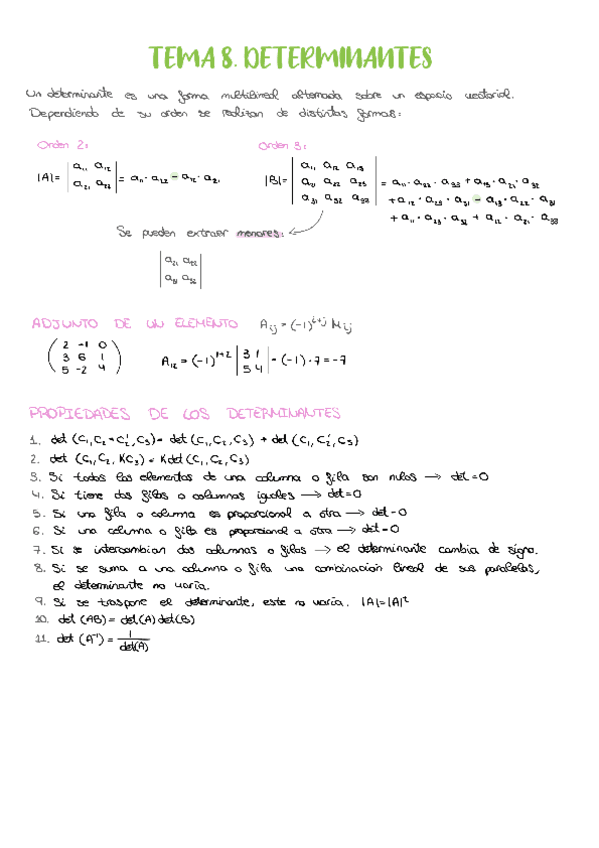 TEMA 8. DETERMINANTES
Un determinante es una forma multilineal alternada sobre un espacio vectorial.
Dependiendo de su orden se realizan de distintas formas:
Orden 2:
|A| = | a₁₁ a₁₂ | = a₁₁ · a₂₂ - a₁₂ · a₂₁
| a₂₁ a₂₂ |
Orden 3:
| a₁₁ a₁₂ a₁₃ |
|B| = | a₂₁ a₂₂ a₂₃ | = a₁₁ · a₂₂ · a₃₃ + a₁₃ · a₂₁ · a₃₂
| a₃₁ a₃₂ a₃₃ | + a₁₂ · a₂₃ · a₃₁ - a₁₃ · a₂₂ · a₃₁
+ a₁₁ · a₂₃ · a₃₂ + a₁₂ · a₂₁ · a₃₃
Se pueden extraer menores:
| a₂₁ a₂₂ |
| a₃₁ a₃₂ |
ADJUNTO DE UN ELEMENTO Aᵢⱼ = (-1)ⁱ⁺ʲ Mᵢⱼ
2 -1 0
3 6 1
5 -2 4
A₁₂ = (-1)¹⁺² | 3 1 | = (-1) · 7 = -7
| 5 4 |
PROPIEDADES DE LOS DETERMINANTES
1. det (C₁, C₂ + C₂', C₃) = det (C₁, C₂, C₃) + det (C₁, C₂', C₃)
2. det (C₁, C₂, KC₃) = K det (C₁, C₂, C₃)
3. Si todos los elementos de una columna o fila son nulos → det = 0
4. Si tiene dos filas o columnas iguales → det = 0
5. Si una fila o columna es proporcional a otra → det = 0
6. Si una columna o fila es proporcional a otra → det = 0
7. Si se intercambian dos columnas o filas → el determinante cambia de signo.
8. Si se suma a una columna o fila una combinacion lineal de sus paralelas,
el determinante no varía.
9. Si se traspone el determinante, este no varía. |A| = |A|ᵗ
10. det (AB) = det(A) det(B)
11. det (A⁻¹) = 1/det(A)